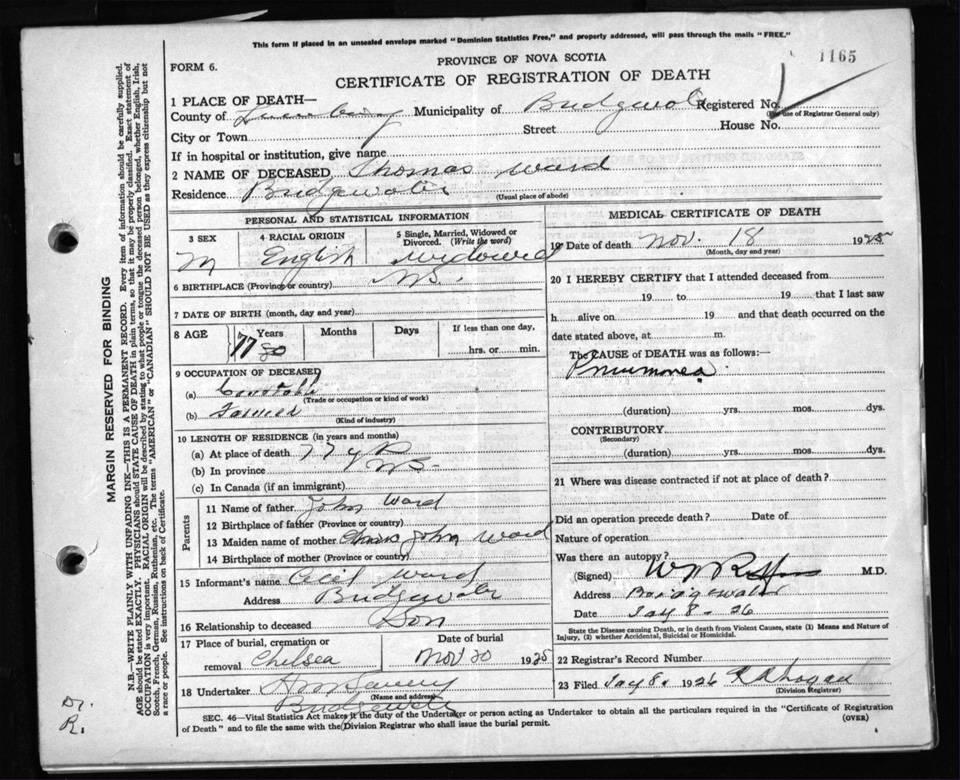 This form if placed in an unsealed envelope marked "Dominion Statistics Free," and properly addressed, will pass through the mails "FREE."
PROVINCE OF NOVA SCOTIA
1165
FORM 6.
CERTIFICATE OF REGISTRATION OF DEATH
1 PLACE OF DEATH—
County of Municipality of Bridgewater Registered No.
(For use of Registrar General only)
City or Town Street House No.
If in hospital or institution, give name
2 NAME OF DECEASED Thomas Ward
Residence Bridgewater (Usual place of abode)
PERSONAL AND STATISTICAL INFORMATION
3 SEX 4 RACIAL ORIGIN 5 Single, Married, Widowed or Divorced. (Write the word)
M English Widowed
6 BIRTHPLACE (Province or country) N.S.
7 DATE OF BIRTH (month, day and year)
8 AGE Years Months Days If less than one day,
77 80 hrs. or min.
9 OCCUPATION OF DECEASED
(a) Constable
(Trade or occupation or kind of work)
(b)
(Kind of industry)
10 LENGTH OF RESIDENCE (in years and months)
(a) At place of death 77 y
(b) In province N.S.
(c) In Canada (if an immigrant)
Parents
11 Name of father John Ward
12 Birthplace of father (Province or country)
13 Maiden name of mother John Ward
14 Birthplace of mother (Province or country)
15 Informant's name Ward
Address Bridgewater
16 Relationship to deceased Son
17 Place of burial, cremation or Date of burial
removal Chelsea Nov 20 1925
18 Undertaker
(Name and address)
Bridgewater
MEDICAL CERTIFICATE OF DEATH
19 Date of death Nov. 18 1925
(Month, day and year)
20 I HEREBY CERTIFY that I attended deceased from
19 to 19 that I last saw
h alive on 19 and that death occurred on the
date stated above, at m.
The CAUSE OF DEATH was as follows:
Pnuimonea
(duration) yrs. mos. dys.
CONTRIBUTORY
(Secondary)
(duration) yrs. mos. dys.
21 Where was disease contracted if not at place of death?
Did an operation precede death? Date of
Nature of operation
Was there an autopsy?
(Signed) M.D.
Address Bridgewater
Date Jay 8 - 26
State the Disease causing Death, or in death from Violent Causes, state (1) Means and Nature of
Injury, (2) whether Accidental, Suicidal or Homicidal.
22 Registrar's Record Number
23 Filed Jay 8. 1926
(Division Registrar)
SEC. 46—Vital Statistics Act makes it the duty of the Undertaker or person acting as Undertaker to obtain all the particulars required in the "Certificate of Registration
of Death" and to file the same with the Division Registrar who shall issue the burial permit.
(OVER)
MARGIN RESERVED FOR BINDING
N.B.—WRITE PLAINLY WITH UNFADING INK—THIS IS A PERMANENT RECORD. Every item of information should be carefully supplied.
AGE should be stated EXACTLY. PHYSICIANS should STATE CAUSE OF DEATH in plain terms, so that it may be properly classified. Exact statement of
OCCUPATION is very important. RACIAL ORIGIN will be described by stating to what people or tongue the deceased person belonged, whether English, Irish,
Scotch, French, German, Russian, Ruthenian, etc. The terms "AMERICAN" or "CANADIAN" SHOULD NOT BE USED as they express citizenship but not
a race or people. See instructions on back of Certificate.
Dr.
R.